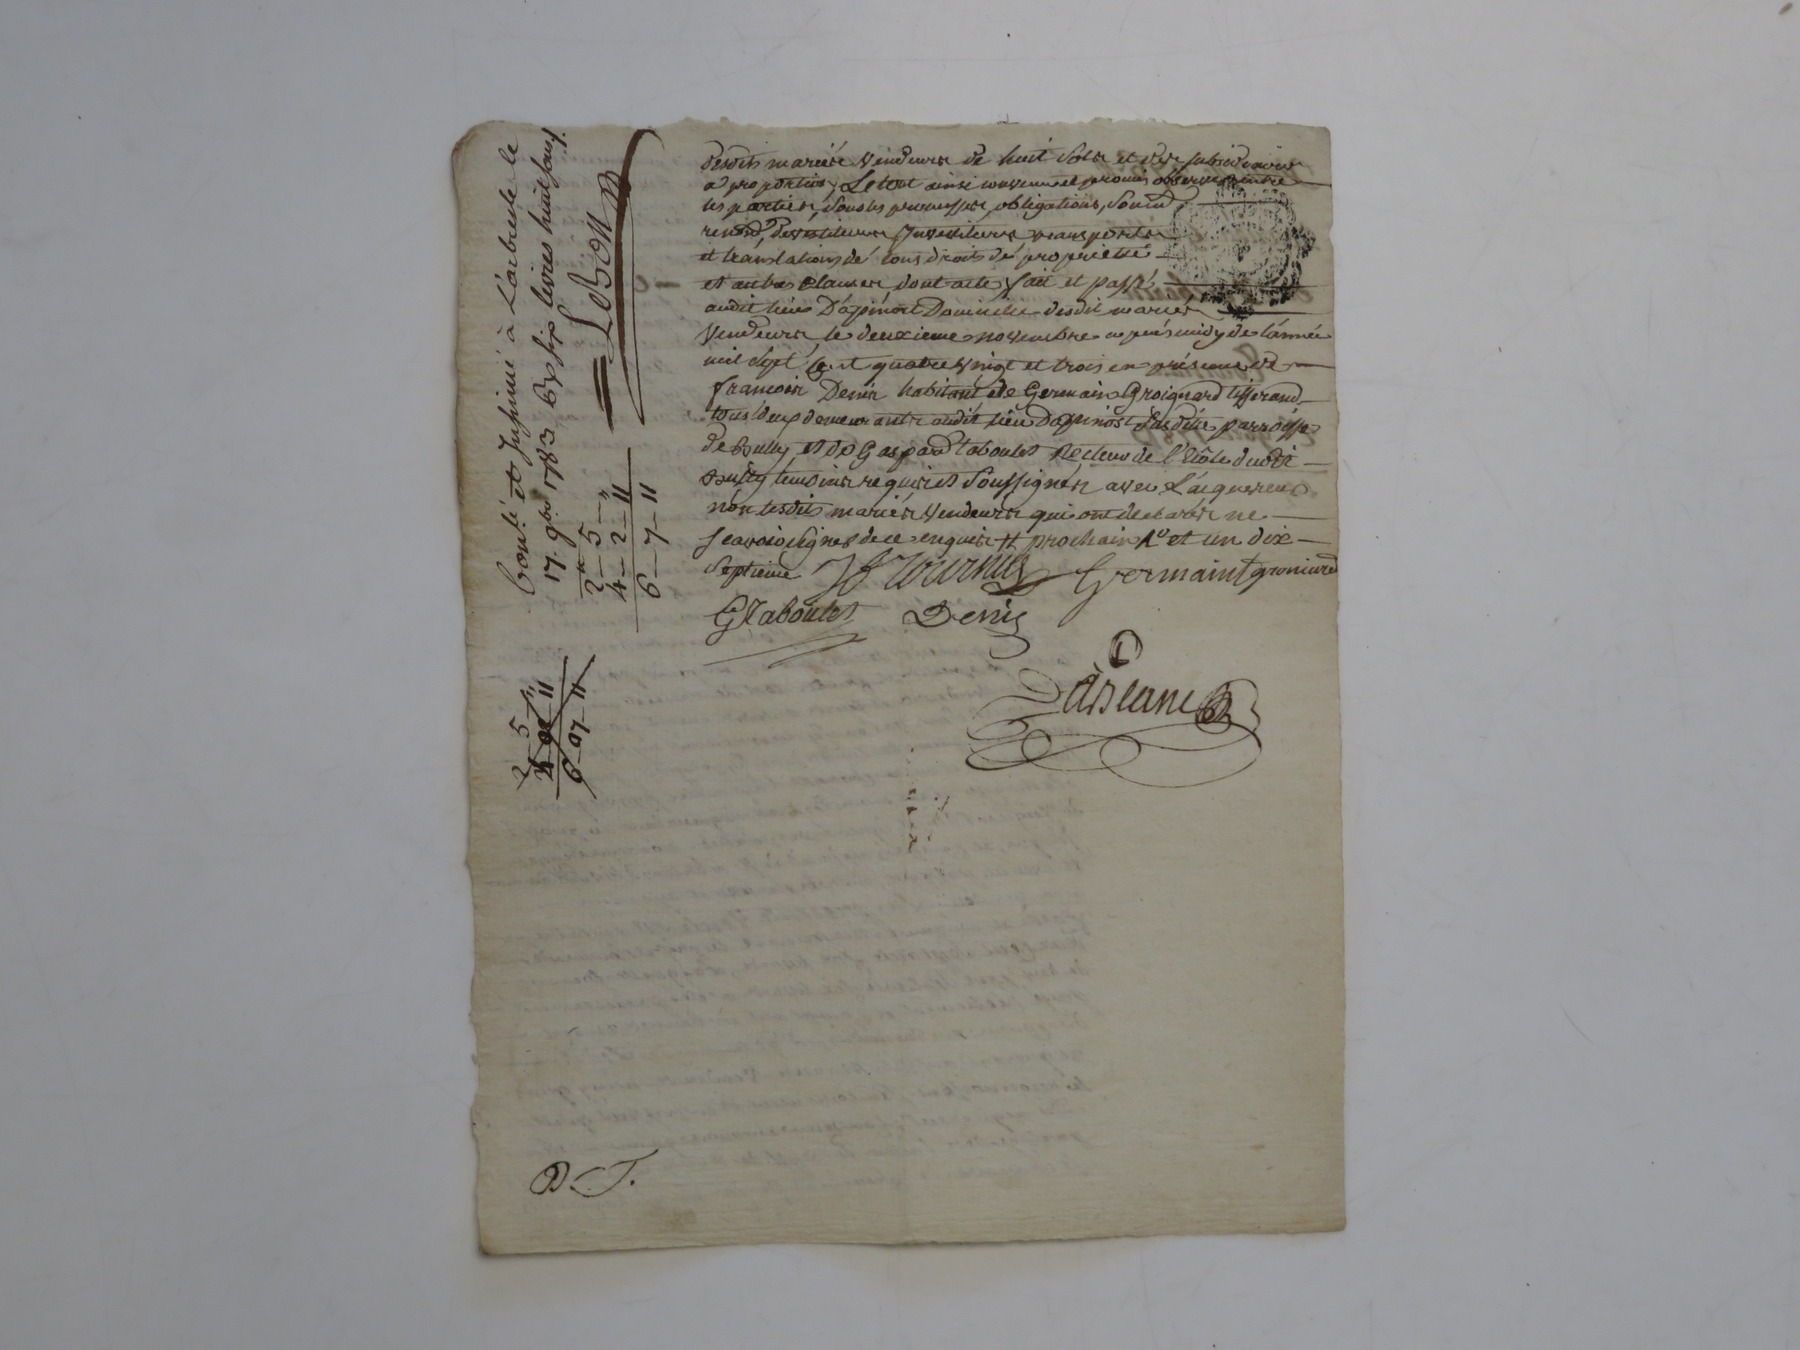 desdits mariés vendeurs de huit sols et des subsidiaires
a proportion, Le tout ainsi convenu et promis observer entre
les parties, sous les promesses, obligations, soumi
renon, devestitures Investitures transports
et translations dé tous droits dé proprieté
et autres Clauses dont acte, fait et passé
audit lieu D'apinost Domicile desdit mariés
vendeurs le deuxieme novembre après midy de l'année
mil sept Cent quatre vingt et trois en présence de
françois Denis habitant et de Germain Groignard tisserand
tous deux demeurants audit lieu dapinost susdite parroisse
de Bully et de Gaspard taboulet Recteur de l'Ecole dudit
Bully temoins requis et soussignés avec L'acquereur
non lesdits mariés vendeurs qui ont declarés ne
sçavoir signer de ce enquis et prochain Ro et un dix
septieme JF Tournus Germain groniard
G Taboulet Denis
D. J.
Conlé et Insinué à L'arbresle le
17. 9bre 1783 Reçu six livres huit sous
LeBon
2 — 5 — "
4 — 2 — 11
6 — 7 — 11
2 5 "
4 02 11
6 07 11